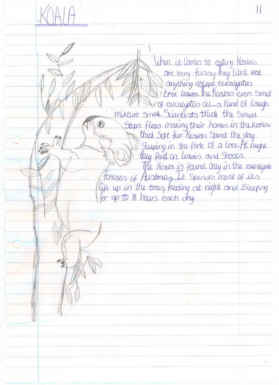 KOALA
11
When it comes to eating Koalas
are very fussy they will not
anything except eucalyptus
tree leaves the Koalas even smell
of eucalyptus oil - a kind of cough
mixture smell. Scientists think the smell
stops fleas making their homes in the Koalas
thick soft fur Koalas spend the day
sleeping in the fork of a tree. At night
they feed on leaves and shoots.
The Koala is found only in the eucalypt
forests of Australia. It spends most of its
life up in the trees feeding at night and sleeping
for up to 18 hours each day.